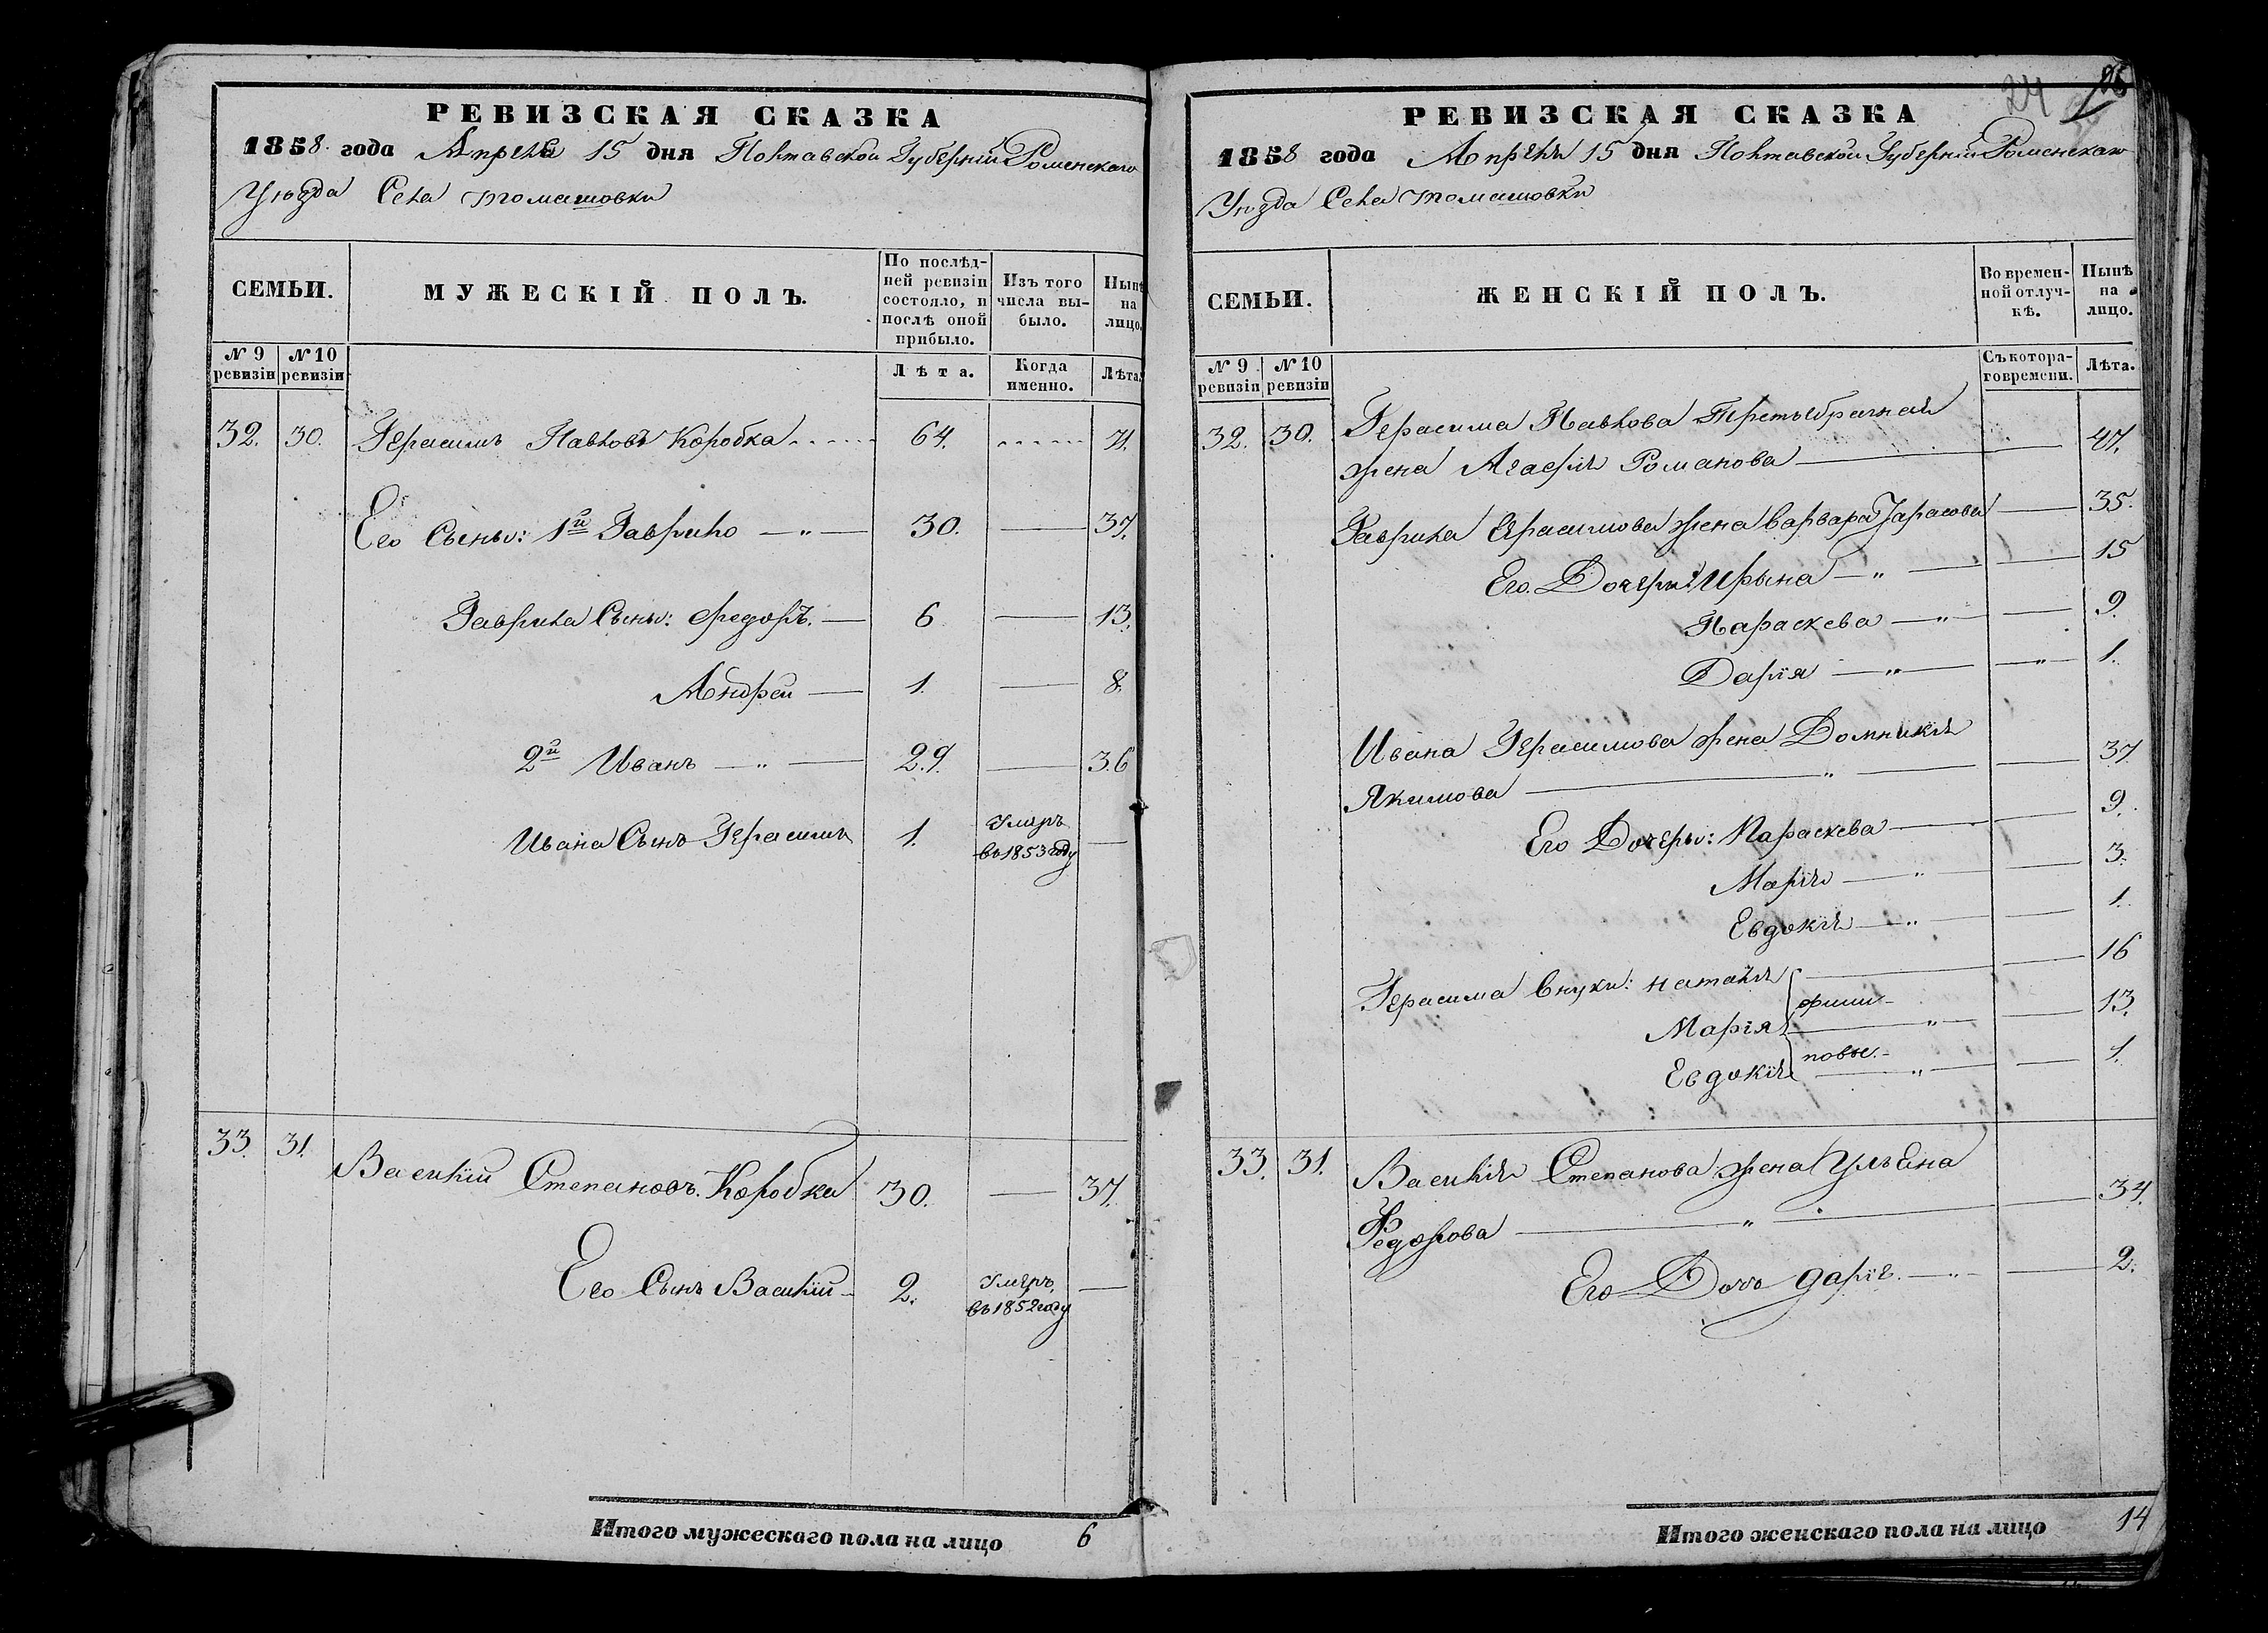 РЕВИЗСКАЯ СКАЗКА
1858. года Апреля 15 дня Полтавской Губернiи Роменскаго
Уѣзда Села Томашовки
СЕМЬИ.
МУЖЕСКIЙ ПОЛЪ.
По послѣд-
ней ревизiи
состояло, и
послѣ оной
прибыло.
Изъ того
числа вы-
было.
Нынѣ
на
лицо.
№ 9
ревизiи
№ 10
ревизiи
Лѣта.
Когда
именно.
Лѣта.
32. 30. Герасимъ Павловъ Коробка 64. 71.
Его Сыны: 1й Гаврило — " — 30. — 37.
Гаврила Сыны: Федоръ. — 6 — 13.
Андрей — 1. — 8.
2й Иванъ — " — 29. — 36
Ивана Сынъ Герасимъ 1. Умеръ —
въ 1853 году
33. 31. Василiй Степановъ Коробка 30. — 37.
Его Сынъ Василiй — 2. Умеръ —
въ 1852 году
Итого мужескаго пола на лицо 6
24 25
РЕВИЗСКАЯ СКАЗКА
1858 года Апреля 15 дня Полтавской Губернiи Роменскаго
Уѣзда Села Томашовки
СЕМЬИ.
ЖЕНСКIЙ ПОЛЪ.
Во времен-
ной отлуч-
кѣ.
Нынѣ
на
лицо.
№ 9
ревизiи
№ 10
ревизiи
Съ котора-
го времени.
Лѣта.
32. 30. Герасима Павлова Третьебрачная
жена Агафiя Романова — 47.
Гаврила Герасимова жена Варвара Тарасова — 35.
Его Дочери: Ирына — " — 15
Параскева — " — 9.
Дарiя — " — — " — 1.
Ивана Герасимова жена Домникiя
Якимова — " — 37
Его Дочеры: Параскева — 9.
Марiя — " — 3.
Евдокiя — " — 1.
Герасима внуки: Наталiя — 16
Марiя — " — 13.
Евдокiя — " — 1.
33. 31. Василiя Степанова жена Ульена
Федорова — " — 34.
Его Дочь Дарiя. — " — 2.
Итого женскаго пола на лицо 14